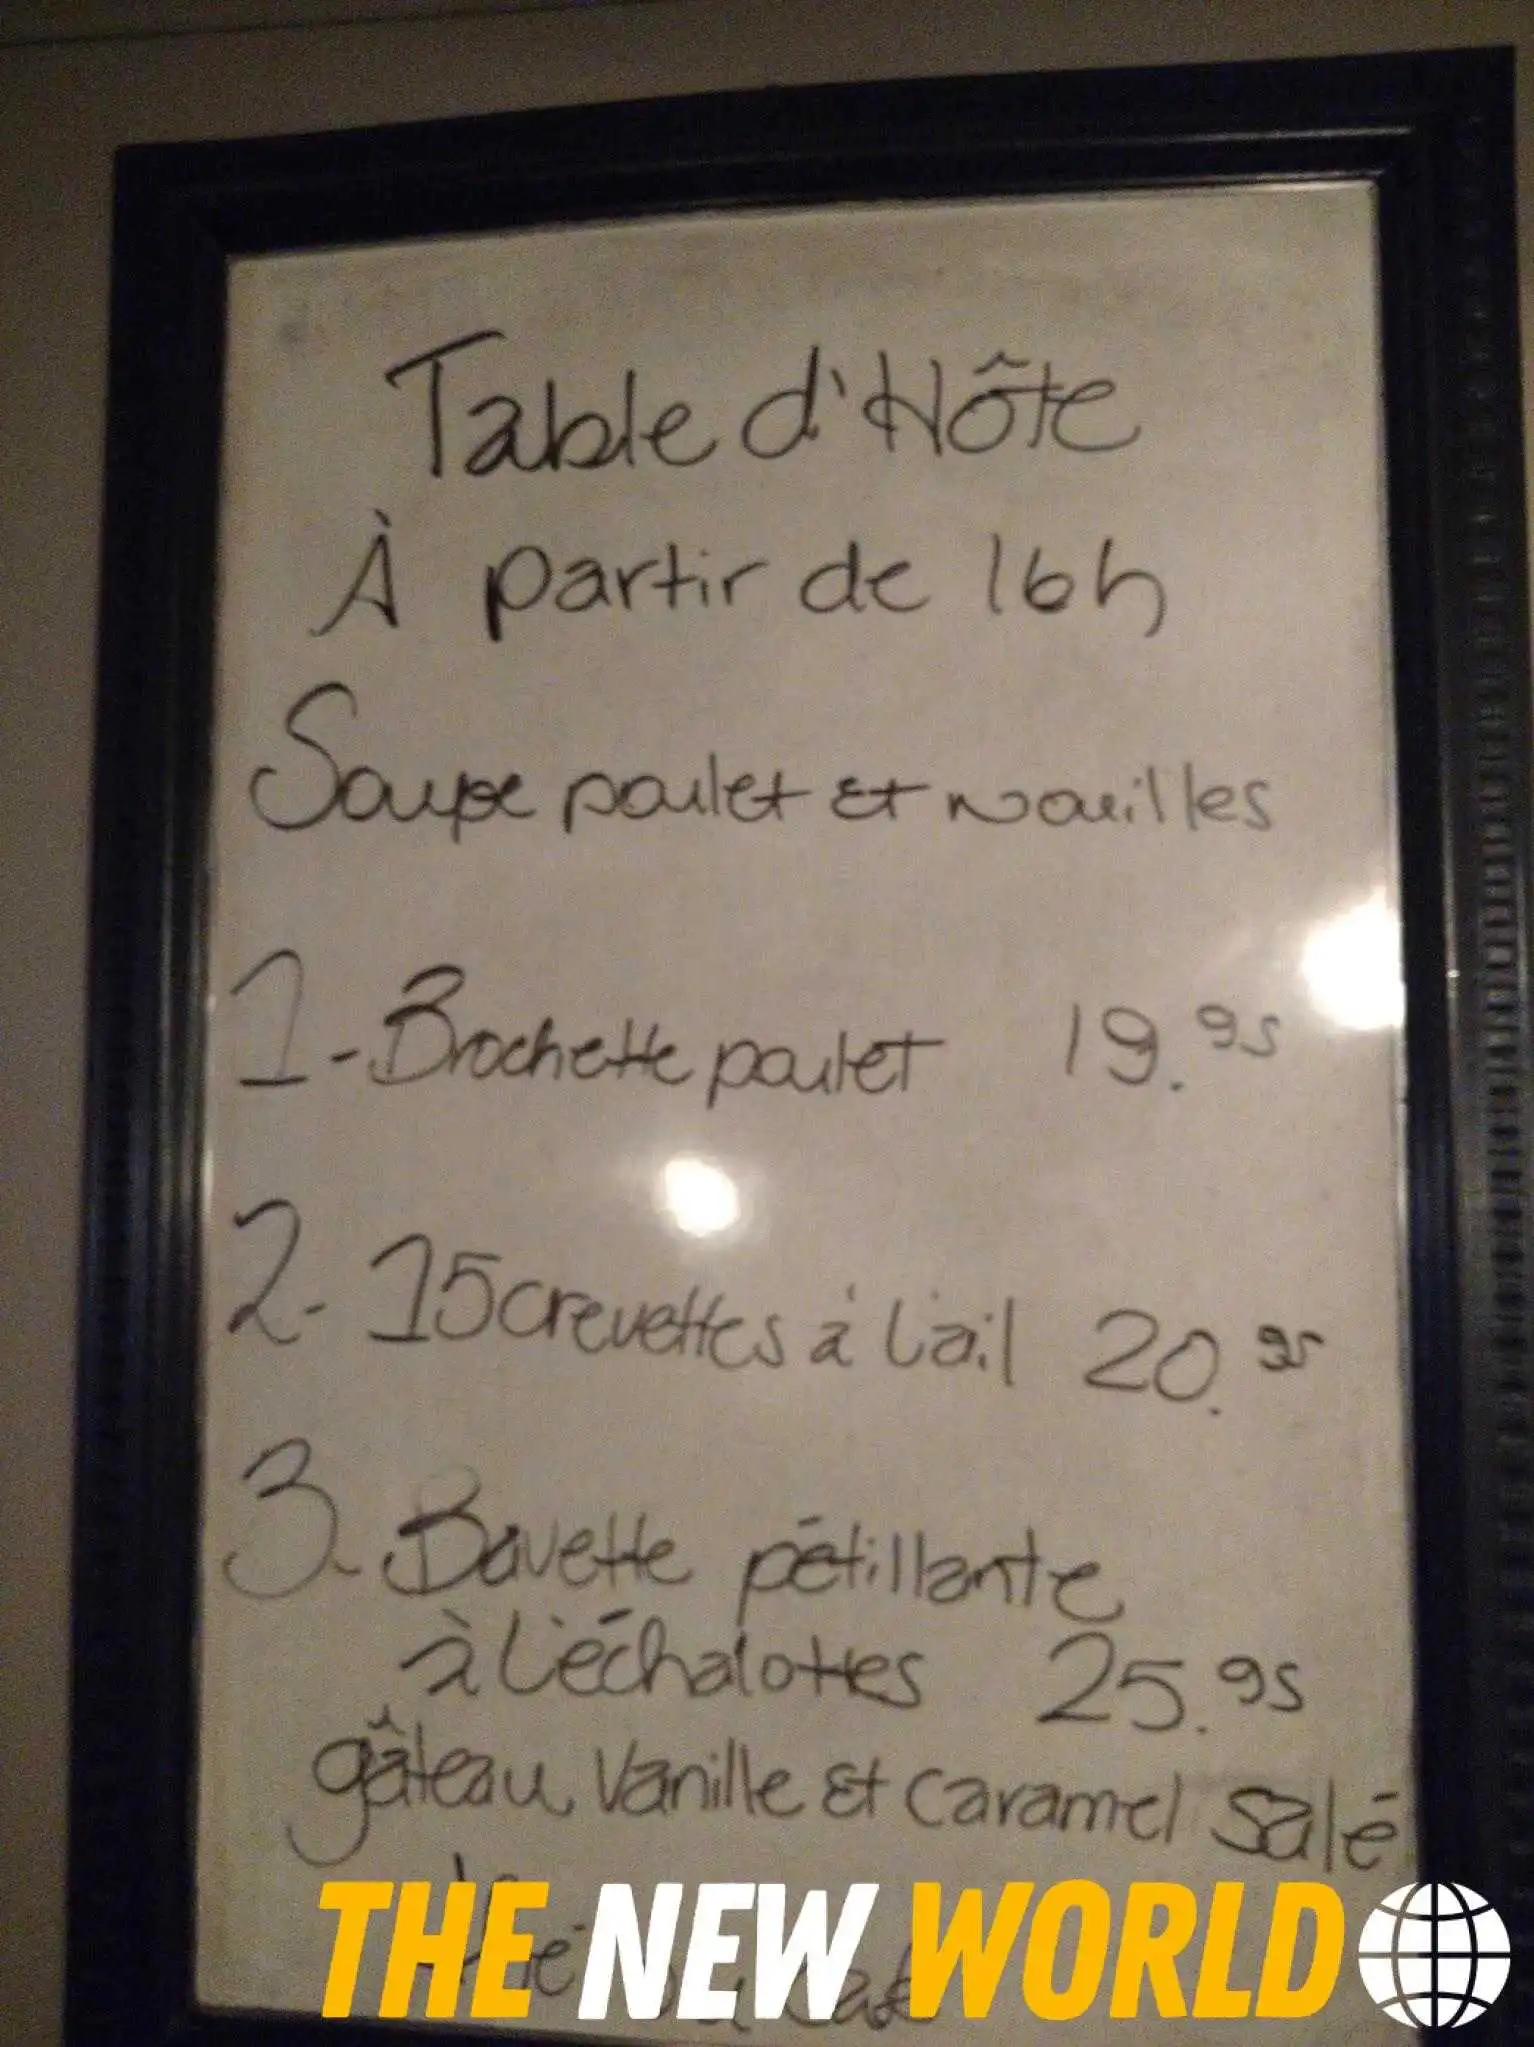 Table d'Hôte
À partir de 16h
Soupe poulet et nouilles
1-Brochette poulet 19.95
2-15crevettes à l'ail 20.95
3-Bavette pétillante
à l'échalottes 25.95
gâteau vanille et caramel salé
THE NEW WORLD